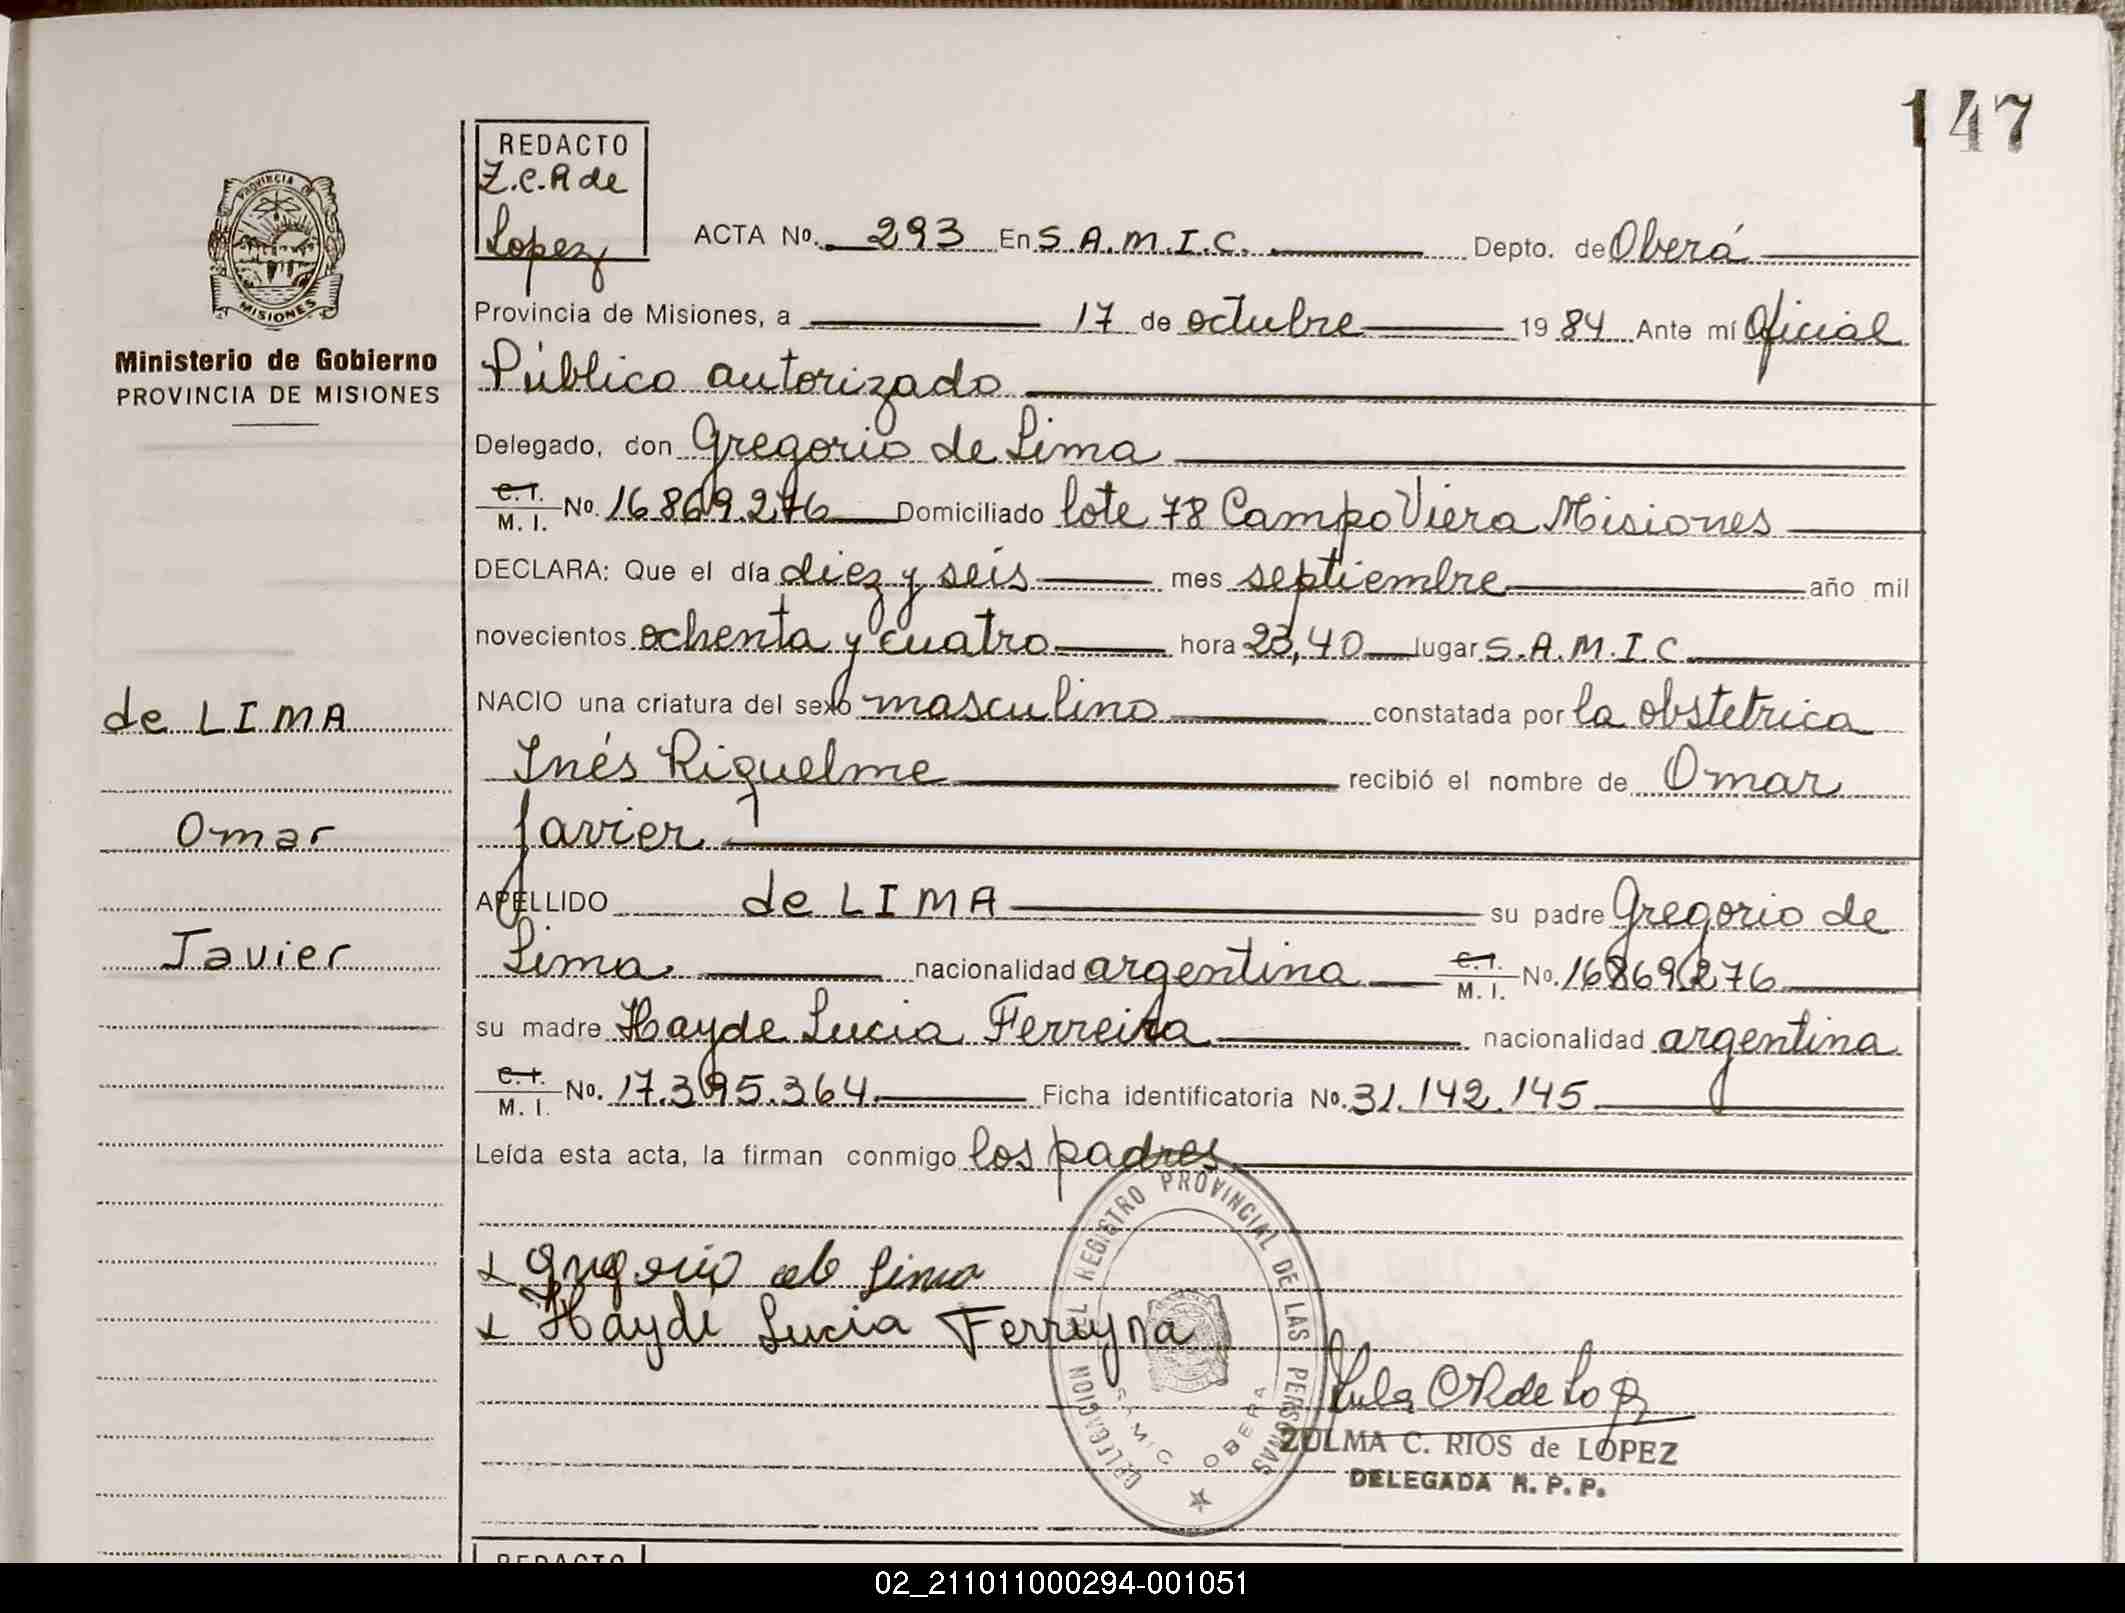 147
REDACTO
Z.C.R de
Lopez
PROVINCIA DE
MISIONES
Ministerio de Gobierno
PROVINCIA DE MISIONES
ACTA No. 293 En S.A.M.I.C. Depto. de Oberá
Provincia de Misiones, a 17 de octubre 1984 Ante mí Oficial
Público autorizado
Delegado, don Gregorio de Lima
C.I. M.I. No. 16.869.276 Domiciliado lote 78 Campo Viera Misiones
DECLARA: Que el día diez y seis mes septiembre año mil
novecientos ochenta y cuatro hora 23,40 lugar S.A.M.I.C
NACIO una criatura del sexo masculino constatada por la obstetrica
Inés Riquelme recibió el nombre de Omar
Javier
APELLIDO de LIMA su padre Gregorio de
Lima nacionalidad argentina C.I. M.I. No. 16869276
su madre Hayde Lucia Ferreira nacionalidad argentina
C.I. M.I. No. 17.395.364 Ficha identificatoria No. 31.142.145
Leída esta acta, la firman conmigo los padres
de LIMA
Omar
Javier
x Gregorio de Lima
x Hayde Lucia Ferreyra
DELEGACION DEL REGISTRO PROVINCIAL DE LAS PERSONAS
SAMIC OBERA
ZULMA C. RIOS de LOPEZ
DELEGADA R. P. P.
REDACTO
02_211011000294-001051